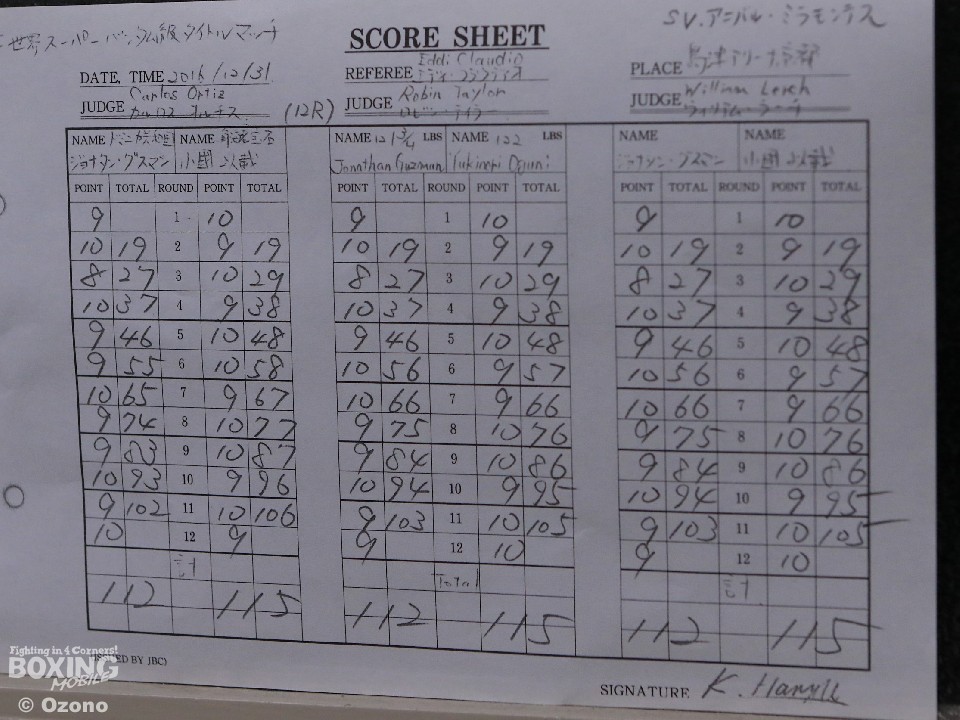 世界スーパーバンタム級タイトルマッチ
SCORE SHEET
SV. アニバル・ミラモンテス
DATE, TIME 2016/12/31
REFEREE Eddi Claudio
PLACE 島津アリーナ京都
JUDGE Carlos Ortiz
カルロス オルチス
(12R)
JUDGE Robin Taylor
ロビン・テイラー
JUDGE William Lerch
ウィリアム・ラーチ
NAME NAME
ジョナタン・グスマン 小國以載
NAME 121 3/4 LBS NAME 122 LBS
Jonathan Guzman Yukinori Oguni
NAME NAME
ジョナタン・グスマン 小國以載
POINT TOTAL ROUND POINT TOTAL POINT TOTAL ROUND POINT TOTAL POINT TOTAL ROUND POINT TOTAL
9 1 10 9 1 10 9 1 10
10 19 2 9 19 10 19 2 9 19 10 19 2 9 19
8 27 3 10 29 8 27 3 10 29 8 27 3 10 29
10 37 4 9 38 10 37 4 9 38 10 37 4 9 38
9 46 5 10 48 9 46 5 10 48 9 46 5 10 48
9 55 6 10 58 10 56 6 9 57 10 56 6 9 57
10 65 7 9 67 10 66 7 9 66 10 66 7 9 66
9 74 8 10 77 9 75 8 10 76 9 75 8 10 76
9 83 9 10 87 9 84 9 10 86 9 84 9 10 86
10 93 10 9 96 10 94 10 9 95 10 94 10 9 95
9 102 11 10 106 9 103 11 10 105 9 103 11 10 105
10 12 9 9 12 10 9 12 10
計 Total 計
112 115 112 115 112 115
BY JBC)
SIGNATURE
Fighting in 4 Corners!
BOXING
MOBILE
© Ozono